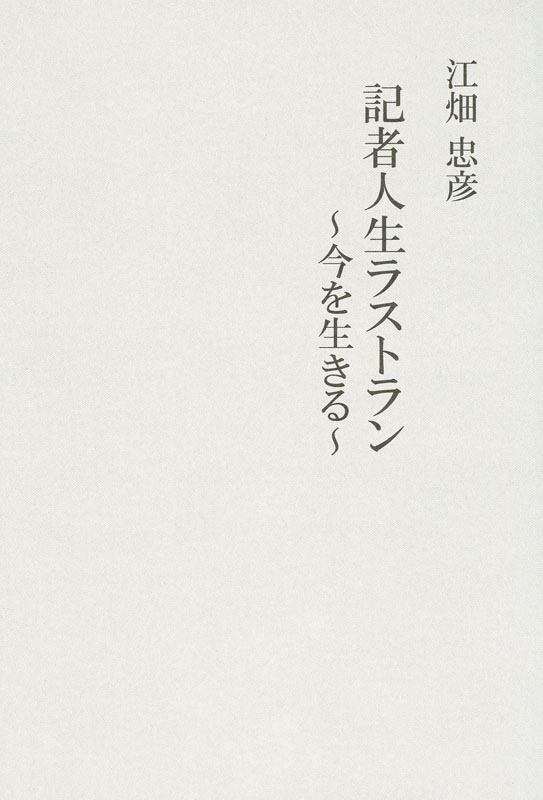 江畑 忠彦
記者人生ラストラン
～今を生きる～